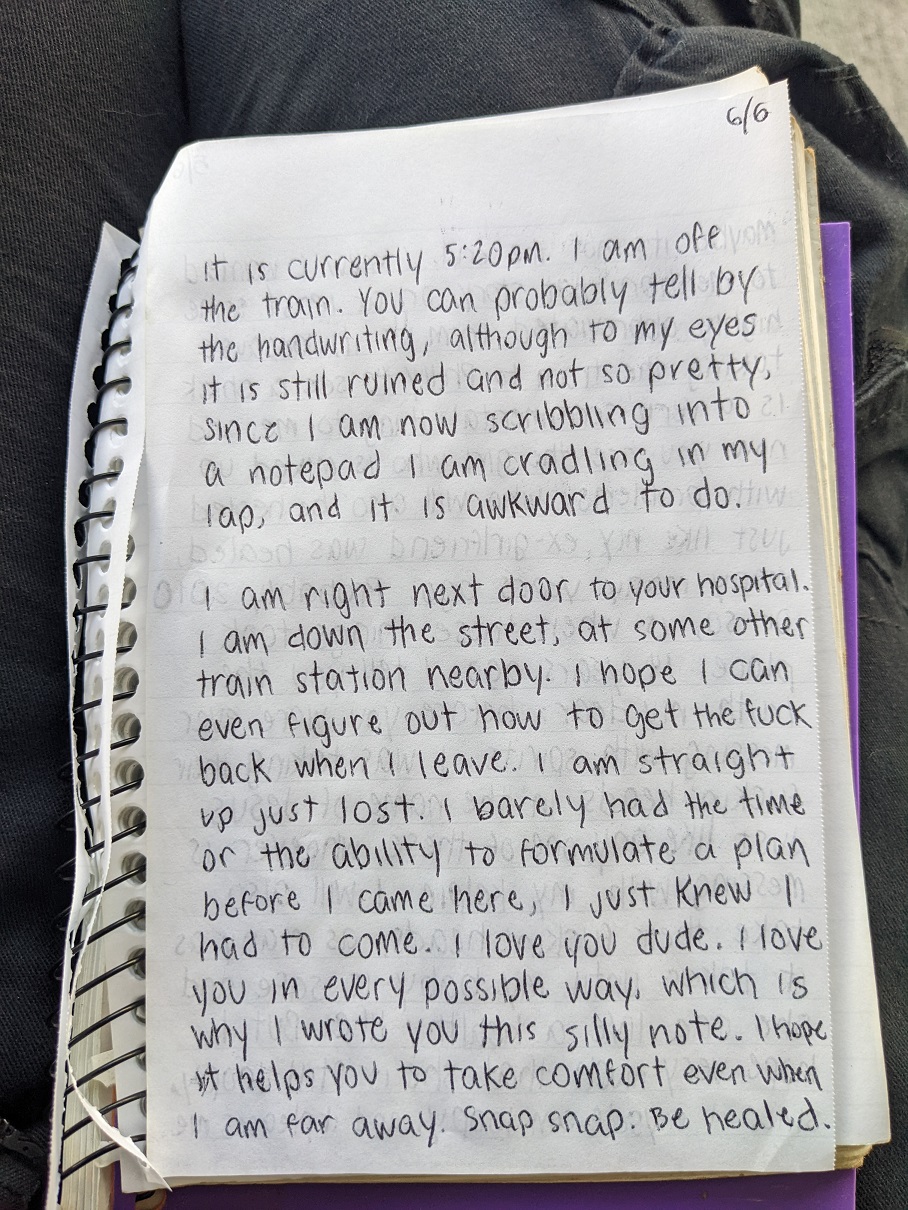 6/6
it is currently 5:20pm. I am off
the train. You can probably tell by
the handwriting, although to my eyes
it is still ruined and not so pretty,
since I am now scribbling into
a notepad I am cradling in my
lap, and it is awkward to do.
I am right next door to your hospital.
I am down the street, at some other
train station nearby. I hope I can
even figure out how to get the fuck
back when I leave. I am straight
up just lost. I barely had the time
or the ability to formulate a plan
before I came here, I just knew I
had to come. I love you dude. I love
you in every possible way, which is
why I wrote you this silly note. I hope
it helps you to take comfort even when
I am far away. Snap snap. Be healed.